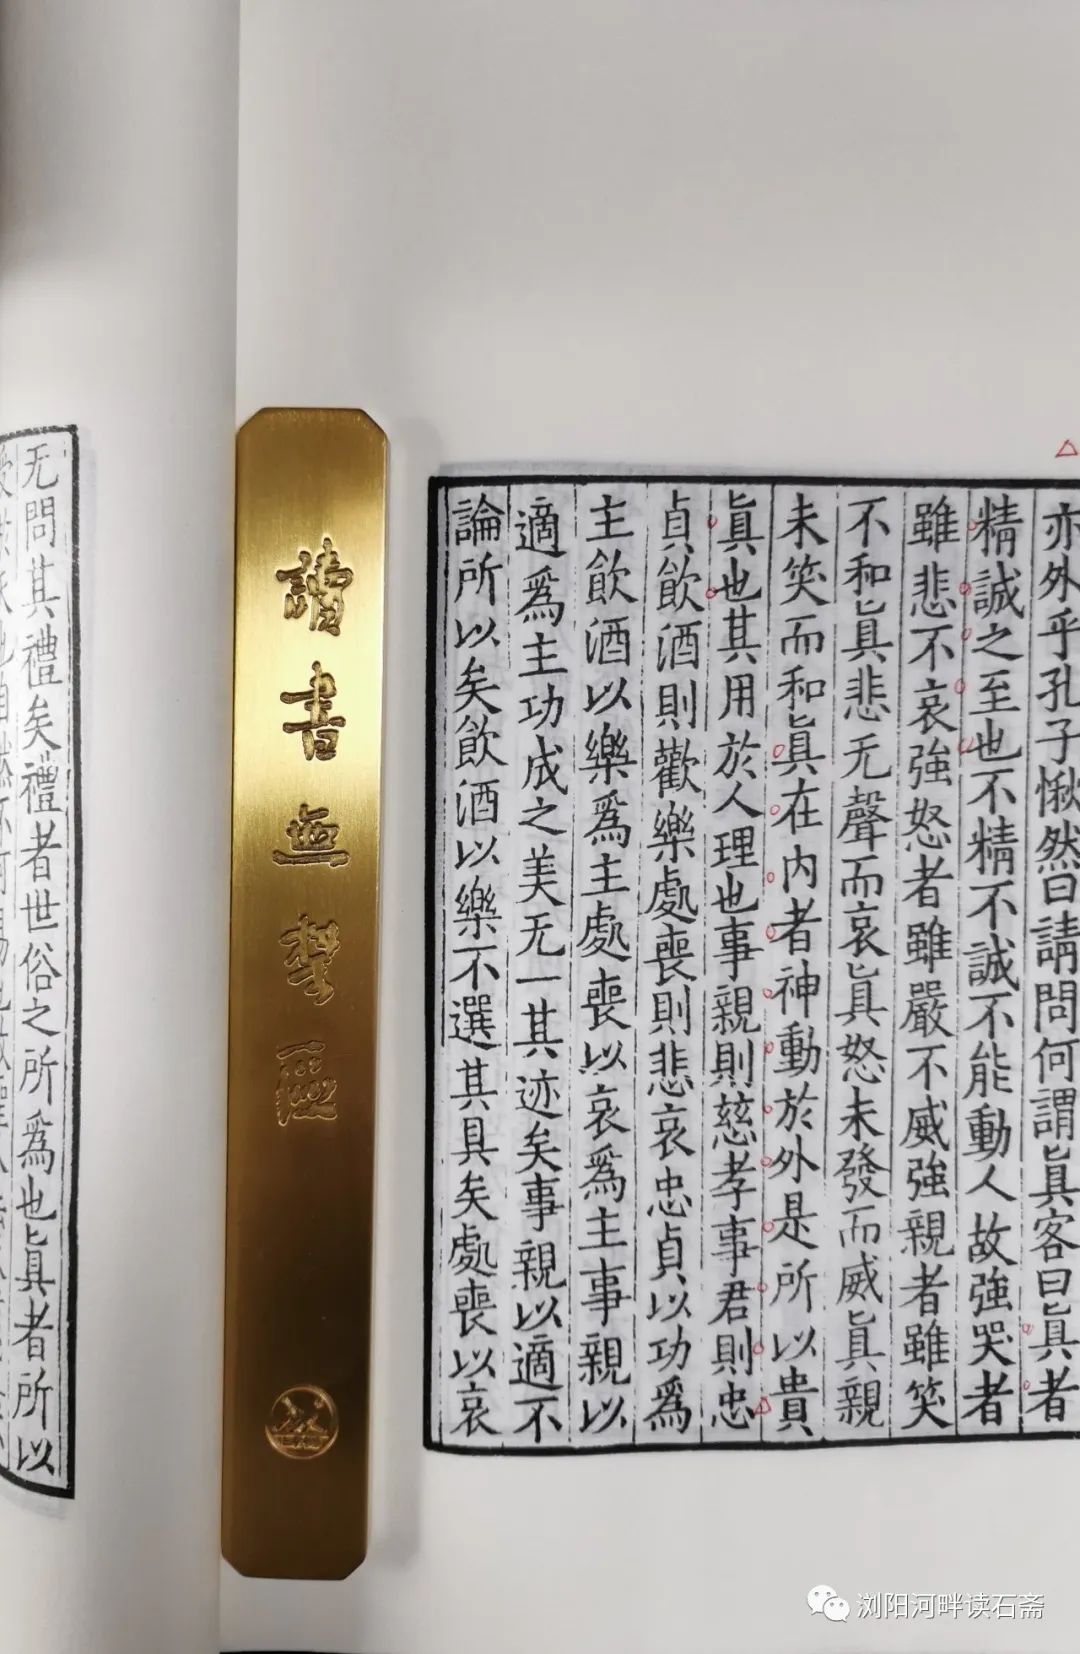 亦外乎孔子愀然曰請問何謂眞客曰眞者
精誠之至也不精不誠不能動人故強哭者
雖悲不哀強怒者雖嚴不威強親者雖笑
不和眞悲无聲而哀眞怒未發而威眞親
未笑而和眞在內者神動於外是所以貴
眞也其用於人理也事親則慈孝事君則忠
貞飲酒則歡樂處喪則悲哀忠貞以功爲
主飲酒以樂爲主處喪以哀爲主事親以
適爲主功成之美无一其迹矣事親以適不
論所以矣飲酒以樂不選其具矣處喪以哀
讀書無
无問其禮矣禮者世俗之所爲也眞者所以
浏阳河畔读石斋